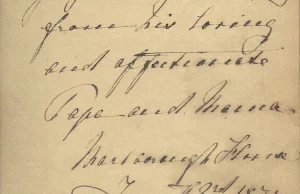 from his loving
and affectionate
Papa and Mama
Marlborough House